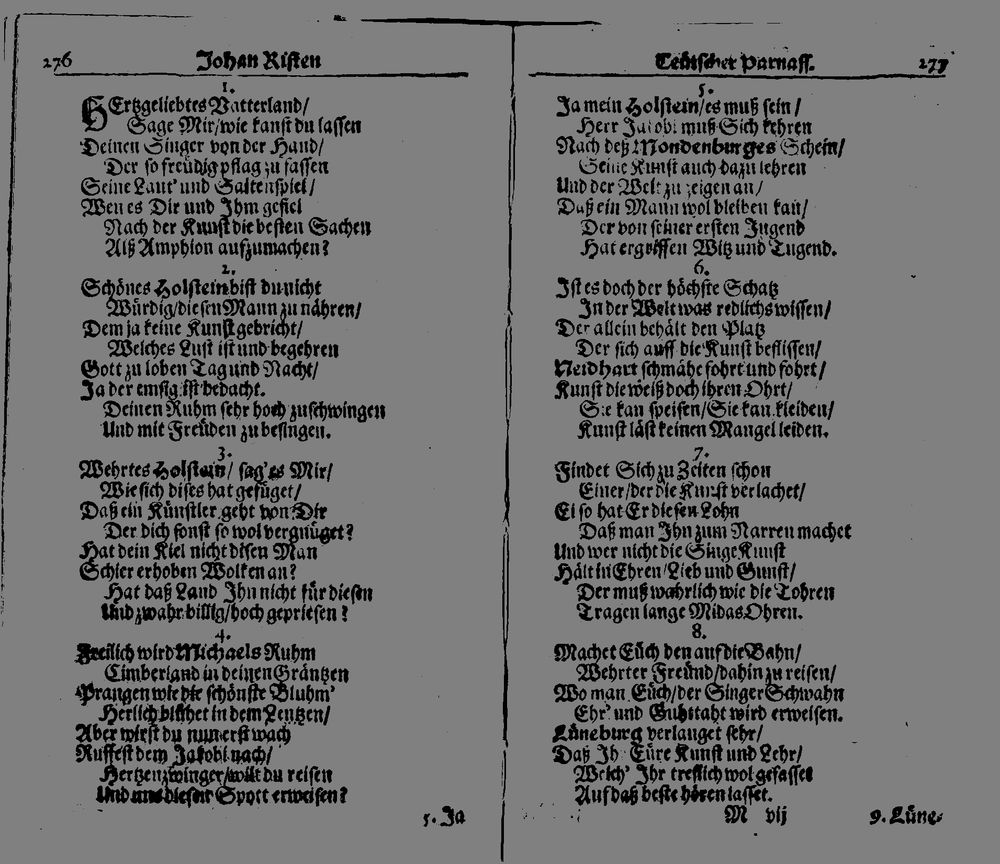 276 Johan Risten
1.
HErtzgeliebtes Vatterland/
Sage Mir/wie kanst du lassen
Deinen Singer von der Hand/
Der so freüdig pflag zu fassen
Seine Laut' und Saitenspiel/
Wen es Dir und Jhm gefiel
Nach der Kunst die besten Sachen
Alß Amphion aufzumachen?
2.
Schönes Holstein bist du nicht
Würdig/diesen Mann zu nähren/
Dem ja keine Kunst gebricht/
Welches Lust ist und begehren
Gott zu loben Tag und Nacht/
Ja der emsig ist bedacht.
Deinen Ruhm sehr hoch zuschwingen
Und mit Freüden zu besingen.
3.
Wehrtes Holstein/ sag' es Mir/
Wie sich dises hat gefüget/
Daß ein Künstler geht von Dir
Der dich sonst so wol vergnüget?
Hat dein Kiel nicht disen Man
Schier erhoben Wolken an?
Hat daß Land Jhn nicht für diesen
Und zwahr billig/hoch gepriesen?
4.
Freilich wird Michaels Ruhm
Cimberland in deinen Gräntzen
Prangen wie die schönste Bluhm'
Herlich blühet in dem Lentzen/
Aber wirst du nun erst wach
Ruffest dem Jakobi nach/
Hertzenzwinger/wilt du reisen
Und uns diesen Spott erweisen?
5. Ja
Teütscher Parnass. 277
5.
Ja mein Holstein/es muß sein/
Herr Jacobi muß Sich kehren
Nach deß Mondenburges Schein/
Seine Kunst auch dazu lehren
Und der Welt zu zeigen an/
Daß ein Mann wol bleiben kan/
Der von seiner ersten Jugend
Hat ergriffen Witz und Tugend.
6.
Jst es doch der höchste Schatz
Jn der Welt was redlichs wissen/
Der allein behält den Platz
Der sich auff die Kunst beflissen/
Neidhart schmähe fohrt und fohrt/
Kunst die weiß doch ihren Ohrt/
Sie kan speisen/Sie kan kleiden/
Kunst läst keinen Mangel leiden.
7.
Findet Sich zu Zeiten schon
Einer/der die Kunst verlachet/
Ei so hat Er diesen Lohn
Daß man Jhn zum Narren machet
Und wer nicht die SingeKunst
Hält in Ehren/Lieb und Gunst/
Der muß wahrlich wie die Tohren
Tragen lange Midas Ohren.
8.
Machet Eüch den auf die Bahn/
Wehrter Freünd/dahin zu reisen/
Wo man Eüch/der Singer Schwahn
Ehr' und Guhttaht wird erweisen.
Lüneburg verlanget sehr/
Daß Jh Eüre Kunst und Lehr/
Welch' Jhr treflich wol gefasset
Auf daß beste hören lasset.
M vij 9. Lüne-